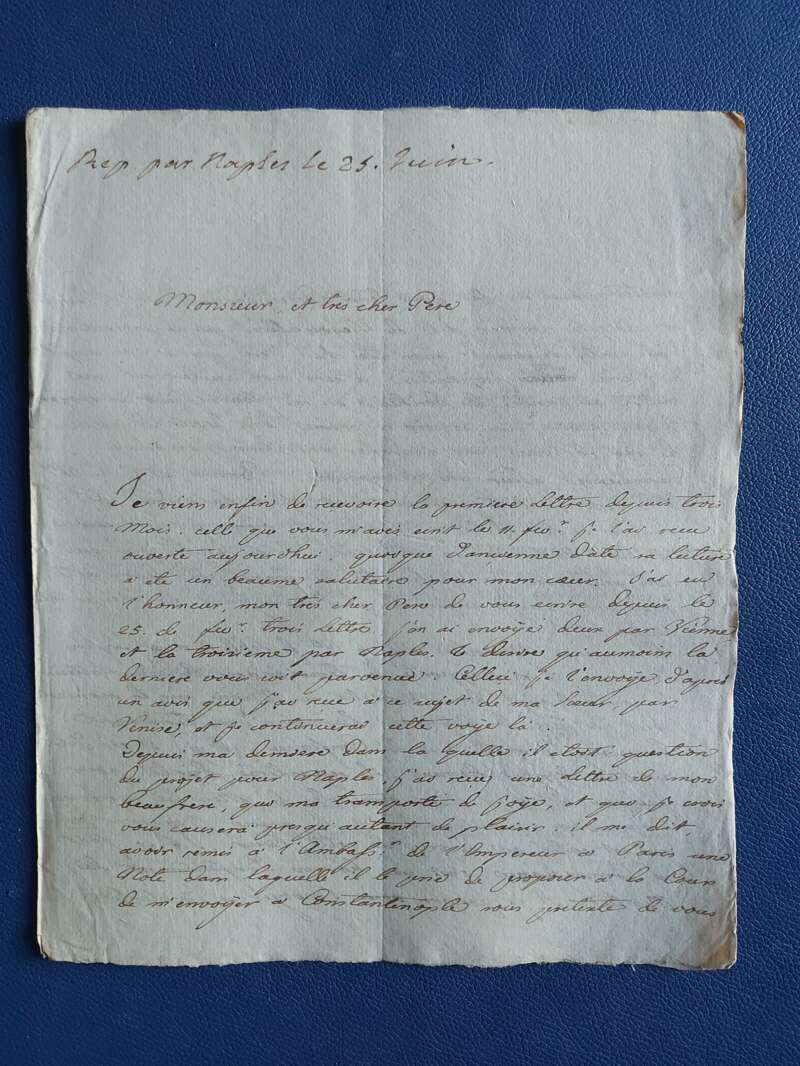 Rep par Naples le 25. Juin.
Monsieur et tres cher Pere
Je viens enfin de recevoire la premiere lettre depuis trois
Mois. celle que vous m'avés ecrit le 11 fevr. je l'ai recu
ouverte aujourdhui. quoique d'ancienne dàte sa lecture
a été un beaume salutaire pour mon cœur. J'ai eu
l'honneur, mon tres cher Pere de vous ecrire depuis le
25. de fevr. trois lettre. j'en ai envoyé deux par Vienne
et la troisieme par Naples. Je desire qu'aumoins la
derniere vous soit parvenue. Celleci je l'envoye d'apres
un avis que j'ai recu a ce sujet de ma sœur, par
Venise, et je continuerai cette voye là.
Depuis ma derniere dans la quelle il etoit question
du projet pour Naples, j'ai reçu une lettre de mon
beaufrere, qui ma transporté de joye, et que je crois
vous causera presqu'autant de plaisir. il me dit,
avoir remis à l'Ambassr. de l'Empereur a Paris une
Note dans laquelle il le prie de proposer a la Cour
de m'envoyer a Constantinople sous pretexte de vous